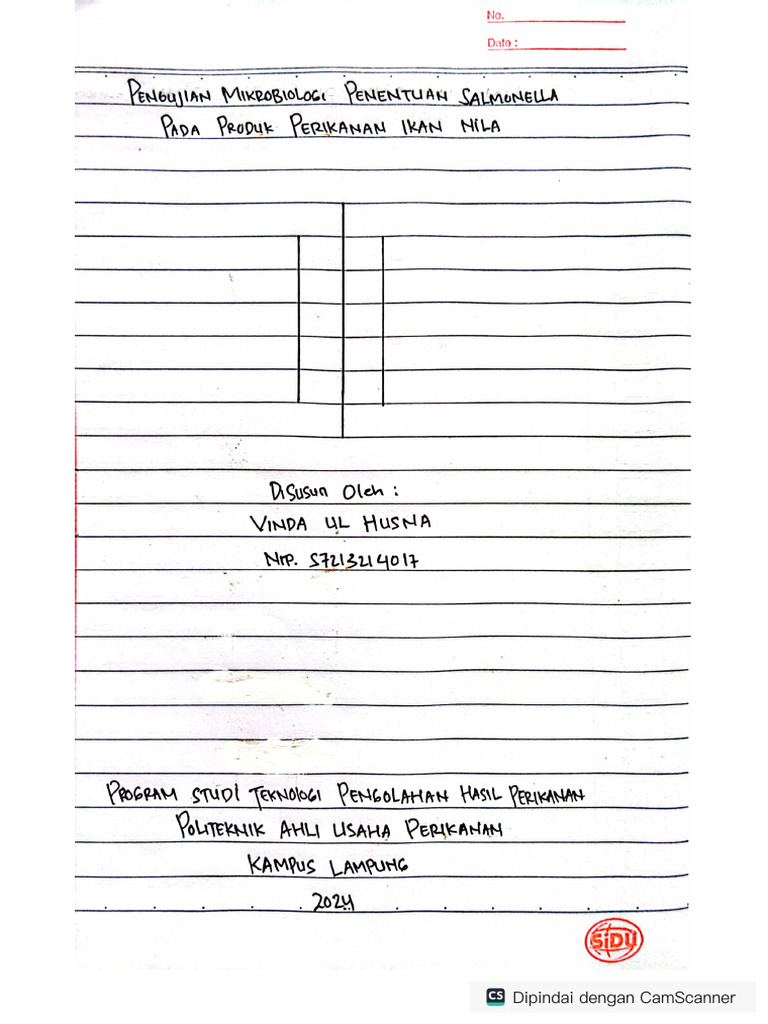 No.
Date :
PENGUJIAN MIKROBIOLOGI PENENTUAN SALMONELLA
PADA PRODUK PERIKANAN IKAN NILA
Disusun Oleh :
VINDA UL HUSNA
Nrp. 57213214017
PROGRAM STUDI TEKNOLOGI PENGOLAHAN HASIL PERIKANAN
POLITEKNIK AHLI USAHA PERIKANAN
KAMPUS LAMPUNG
2024
SiDU
CS Dipindai dengan CamScanner